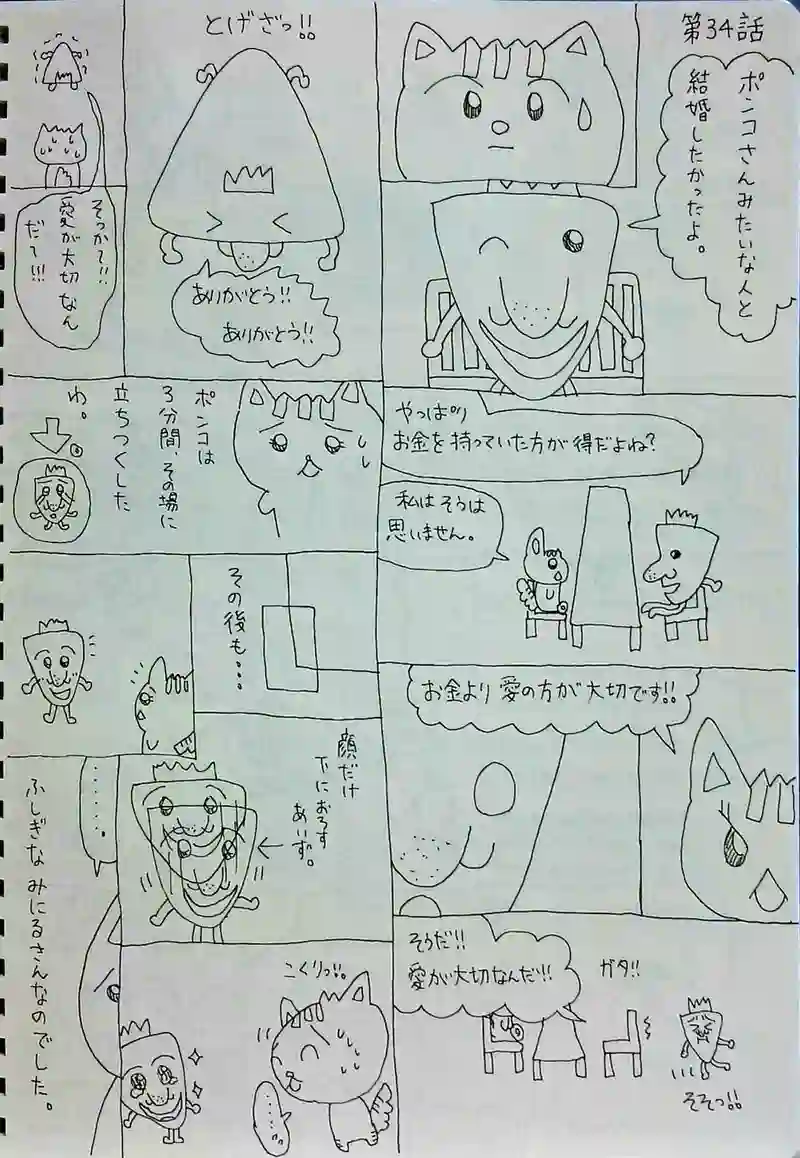 第34話
ポンコさんみたいな人と
結婚したかったよ。
やっぱり
お金を持っていた方が得だよね?
私はそうは
思いません。
お金より愛の方が大切です!!
そうだ!!
愛が大切なんだ!!
ガタ!!
そそっ!!
とげざっ!!
ありがとう!!
ありがとう!!
そっかて!!
愛が大切なん
だて!!!
ポンコは
3分間、その場に
立ちつくした
わ。
その後も・・・
顔だけ
下におろす
あいず。
こくりっ!!。
・・・・
・・・・・・。
ふしぎなみにるさんなのでした。